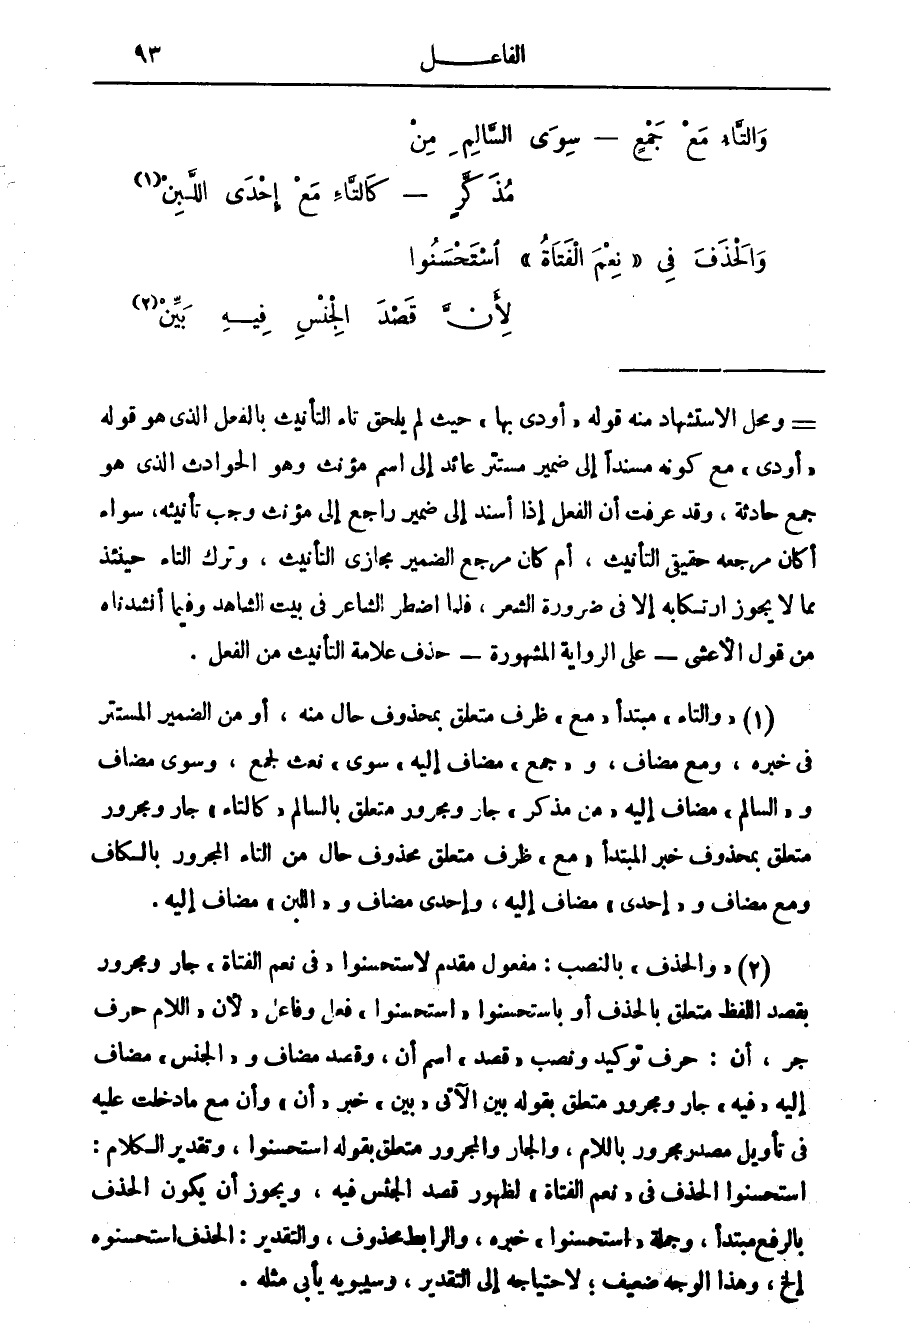 الفاعـــــل ٩٣
وَالتَّاءُ مَعْ جَمْعٍ – سِوَى السَّالِمِ مِنْ
مُذَكَّرٍ – كَالتَّاءِ مَعْ إِحْدَى اللَّبِنْ (١)
وَالْحَذْفَ فِي « نِعْمَ الْفَتَاةُ » اسْتَحْسَنُوا
لِأَنَّ قَصْدَ الْجِنْسِ فِيهِ بَيِّنْ (٢)
= ومحل الاستشهاد منه قوله « أودى بها » حيث لم يلحق تاء التأنيث بالفعل الذى هو قوله
« أودى » مع كونه مسنداً إلى ضمير مستتر عائد إلى اسم مؤنث وهو الحوادث الذى هو
جمع حادثة ، وقد عرفت أن الفعل إذا أسند إلى ضمير راجع إلى مؤنث وجب تأنيثه، سواء
أكان مرجعه حقيقى التأنيث ، أم كان مرجع الضمير مجازى التأنيث ، وترك التاء حينئذ
مما لا يجوز ارتكابه إلا فى ضرورة الشعر ، فلما اضطر الشاعر فى بيت الشاهد وفيما أنشدناه
من قول الأعشى – على الرواية المشهورة – حذف علامة التأنيث من الفعل .
(١) « والتاء » مبتدأ « مع » ظرف متعلق بمحذوف حال منه ، أو من الضمير المستتر
فى خبره ، ومع مضاف ، و « جمع » مضاف إليه « سوى » نعت لجمع ، وسوى مضاف
و « السالم » مضاف إليه « من مذكر » جار ومجرور متعلق بالسالم « كالتاء » جار ومجرور
متعلق بمحذوف خبر المبتدأ « مع » ظرف متعلق محذوف حال من التاء المجرور بالكاف
ومع مضاف و « إحدى » مضاف إليه ، وإحدى مضاف و « اللبن » مضاف إليه .
(٢) « والحذف » بالنصب : مفعول مقدم لاستحسنوا « فى نعم الفتاة » جار ومجرور
بقصد اللفظ متعلق بالحذف أو باستحسنوا « استحسنوا » فعل وفاعل « لأن » اللام حرف
جر ، أن : حرف توكيد ونصب « قصد » اسم أن ، وقصد مضاف و « الجنس » مضاف
إليه « فيه » جار ومجرور متعلق بقوله بين الآتى « بين » خبر « أن » وأن مع مادخلت عليه
فى تأويل مصدر مجرور باللام ، والجار والمجرور متعلق بقوله استحسنوا ، وتقدير الكلام :
استحسنوا الحذف فى « نعم الفتاة » لظهور قصد الجنس فيه ، ويجوز أن يكون الحذف
بالرفع مبتدأ ، وجملة « استحسنوا » خبره ، والرابط محذوف ، والتقدير : الحذف استحسنوه
إلخ ، وهذا الوجه ضعيف ؛ لاحتياجه إلى التقدير ، وسيبويه يأبى مثله .